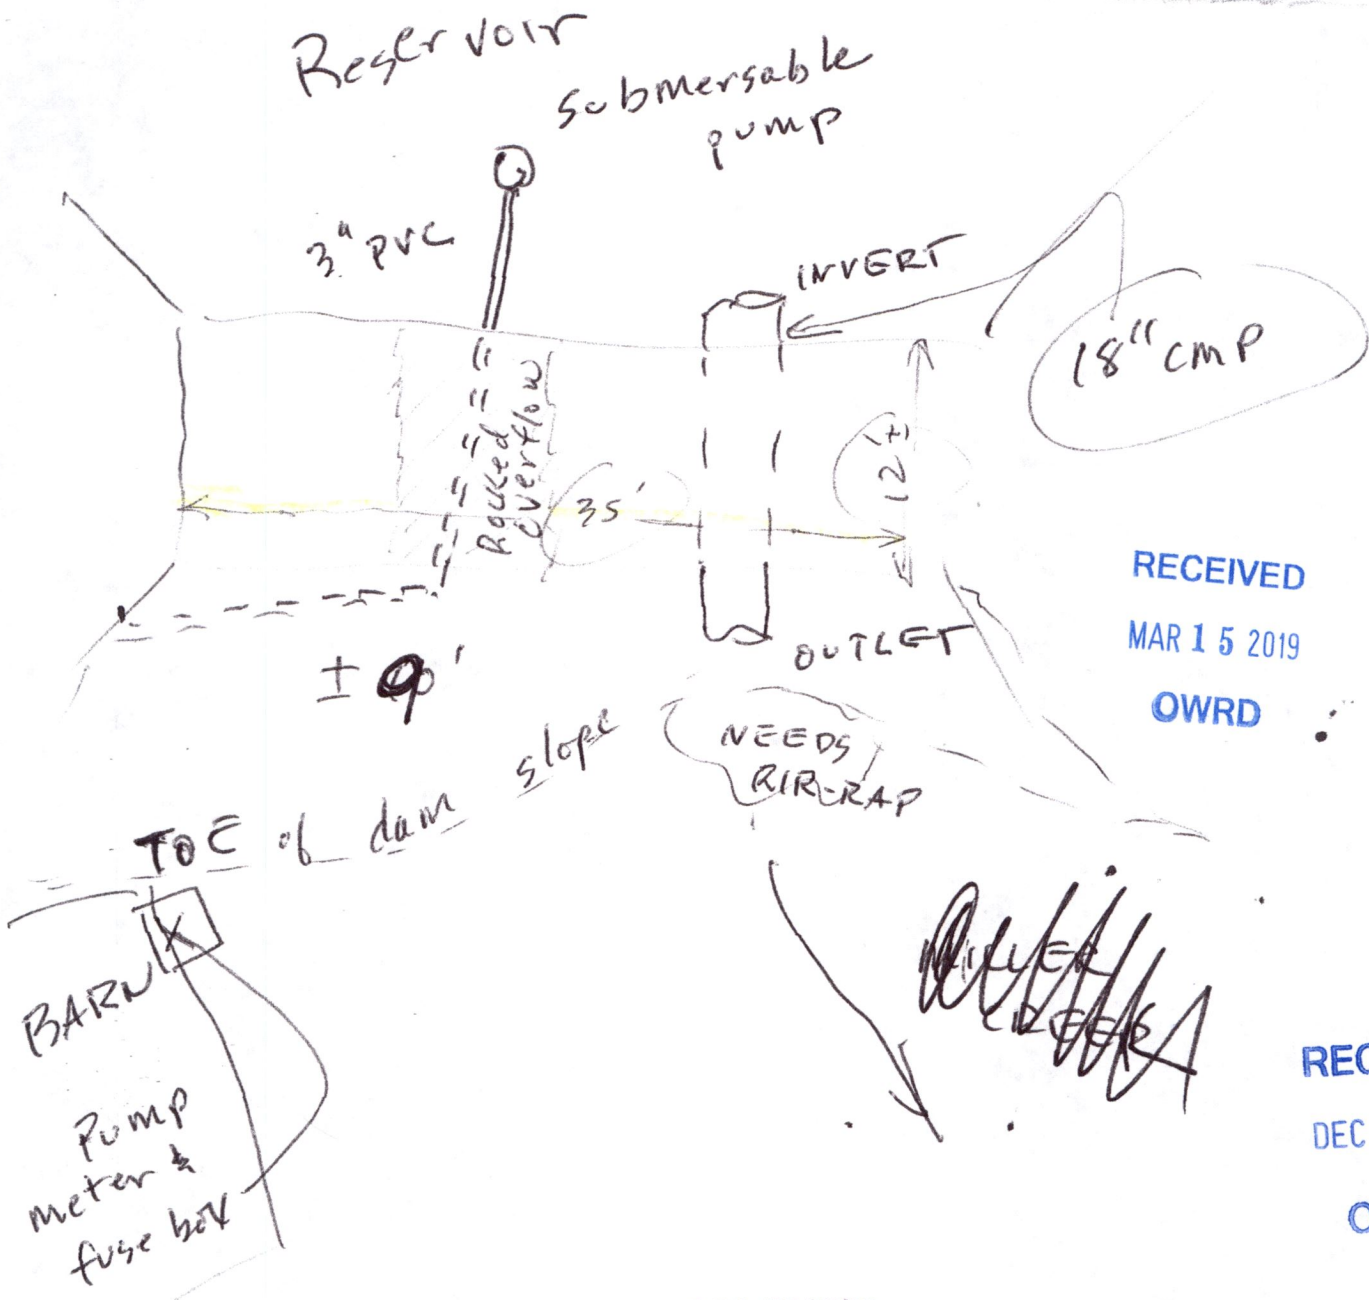 Reservoir
submersable
pump
3" PVC
INVERT
18" CMP
Rocked
overflow
35'
12'±
RECEIVED
MAR 15 2019
OWRD
OUTLET
±
NEEDS
RIP-RAP
TOE of dam slope
BARN
Pump
meter &
fuse box
REC
DEC
O